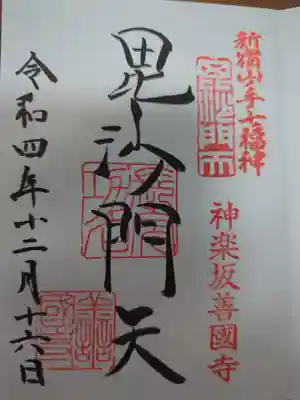 新宿山手七福神
神楽坂善國寺
毘沙門天
令和四年十二月十六日